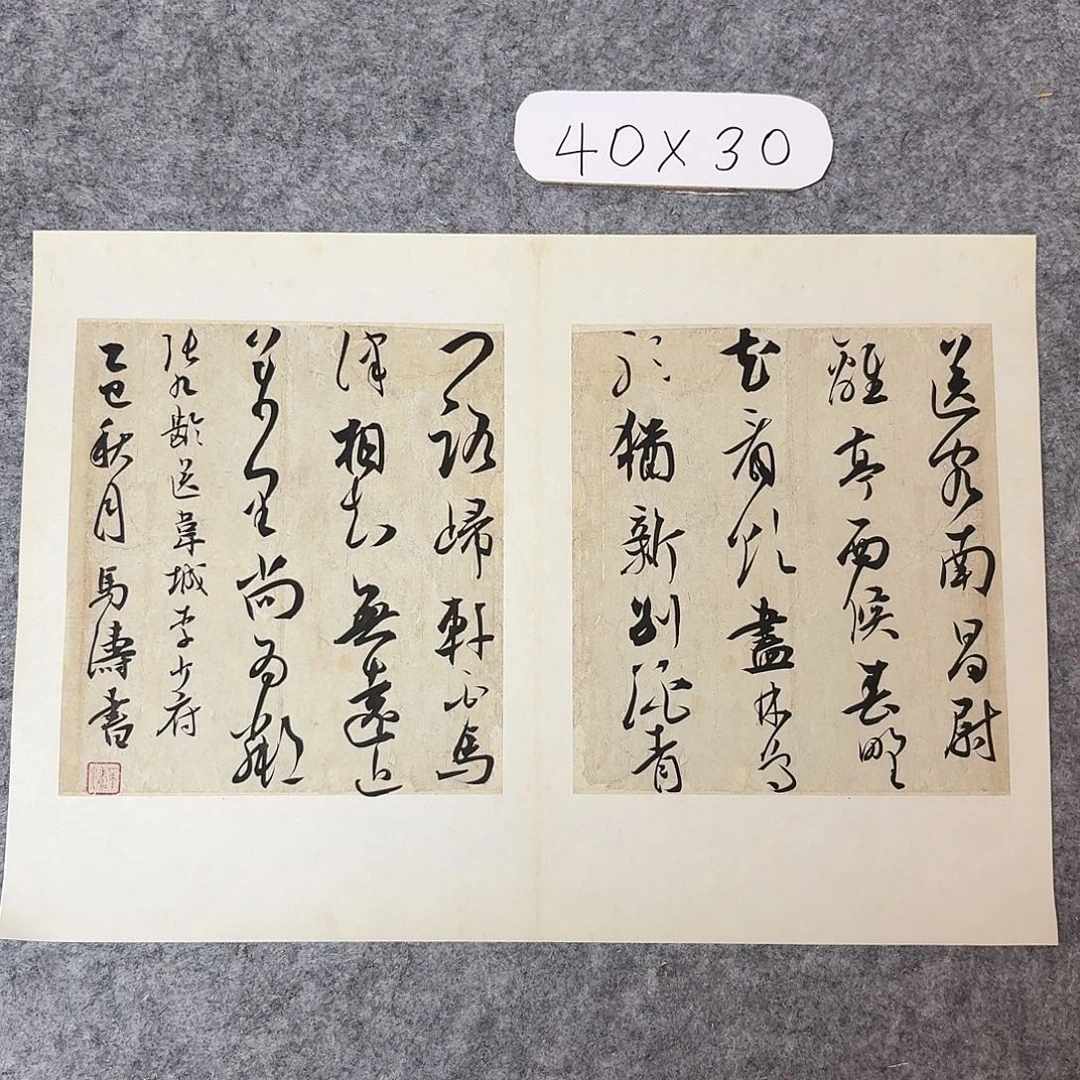 40X30
送客南昌尉
離亭西候春野
花看欲盡林鳥
聽猶新別酒青
門路歸軒白馬
津相知無遠近
萬里尚為鄰
張九齡送韋城李少府
乙巳秋月 馬濤書